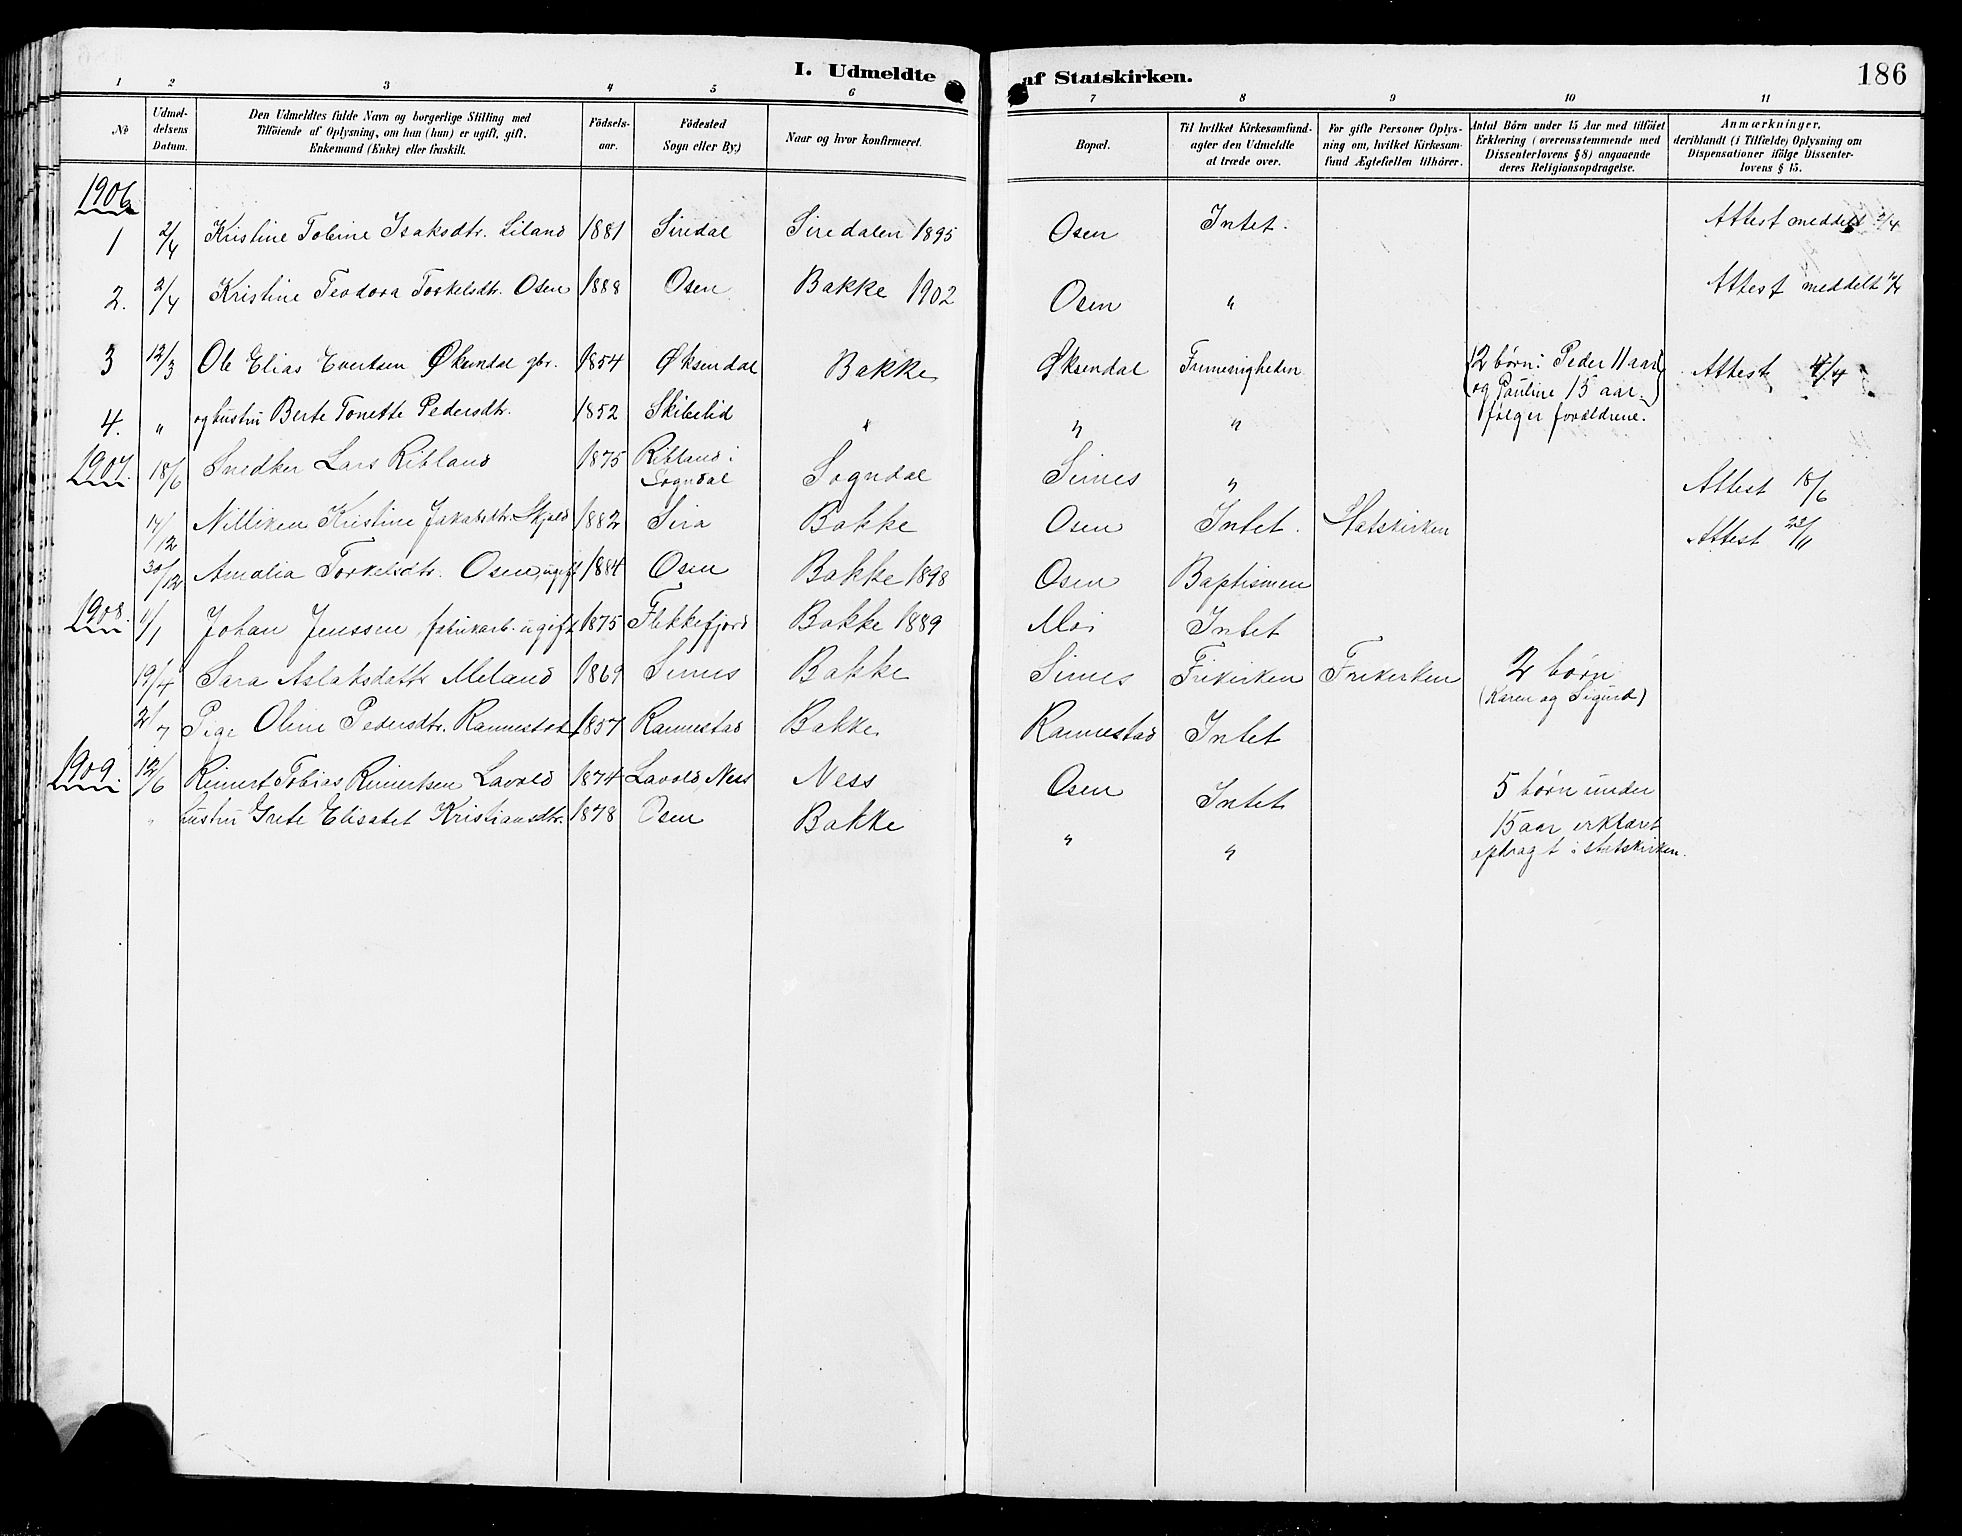 I. Udmeldte af Statskirken.
186
1 2 3 4 5 6 7 8 9 10 11
No
Udmel-
delsens
Datum.
Den Udmeldtes fulde Navn og borgerlige Stilling med
Tilføiende af Oplysning, om han (hun) er ugift, gift,
Enkemand (Enke) eller fraskilt.
Födsels-
aar.
Födested
Sogn eller By.)
Naar og hvor konfirmeret.
Bopæl.
Til hvilket Kirkesamfund-
agter den Udmeldte
at træde over.
For gifte Personer Oplys-
ning om, hvilket Kirkesam-
fund Ægtefællen tilhörer.
Antal Börn under 15 Aar med tilföiet
Erklæring (overensstemmende med
Dissenterlovens § 8) angaaende
deres Religionsopdragelse.
Anmærkninger,
deriblandt (i Tilfælde) Oplysning om
Dispensationer ifölge Dissenter-
lovens § 15.
1906
1 2/4 Kristine Tobine Isaksdtr. Liland 1881 Siredal Siredalen 1895 Osen Intet. Attest meddelt 2/4
2. 2/4 Kristine Teodora Torkelsdtr. Osen 1888 Osen Bakke 1902 Osen " Attest meddelt
3 12/3 Ole Elias Evertsen Øksendal gbr. 1854 Øksendal Bakke Øksendal Frimenigheden 2 børn: Peder 11 aar
og Pauline 13 aar.
Attest 4/4
4. " og hustru Berte Tonette Pedersdtr. 1852 Skibelid " " " følger forældrene.
1907. 18/6 Snedker Lars Ribland 1875 Ribland i
Sogndal
Sogndal Sirnes " Attest 18/6
17/12 Nilliken Kristine Jakobsdtr. 1882 Sira Bakke Osen Intet. Statskirken Attest 23/11
30/12 Amalia Torkelsdtr. Osen, ugift 1884 Osen Bakke 1898 Osen Baptismen
1908. 1/1 Johan Jenssen, fabrikarb. ugift 1875 Flekkefjord Bakke 1889 Moi Intet
19/4 Sara Aslaksdattr Meland 1869 Sirnes Bakke Sirnes Frikirken Frikirken 2 børn
(Karen og Sigurd)
2/7 Pige Oline Pedersdtr. Rannestad 1857 Rannestad Bakke Rannestad Intet
1909. 12/6 Reinert Tobias Reinertsen Lavold 1874 Lavold, Ness Ness Osen Intet 5 børn under
" hustru Grete Elisabet Kristiansdtr. 1878 Osen Bakke " " 15 aar erklæret
opdragt i statskirken.